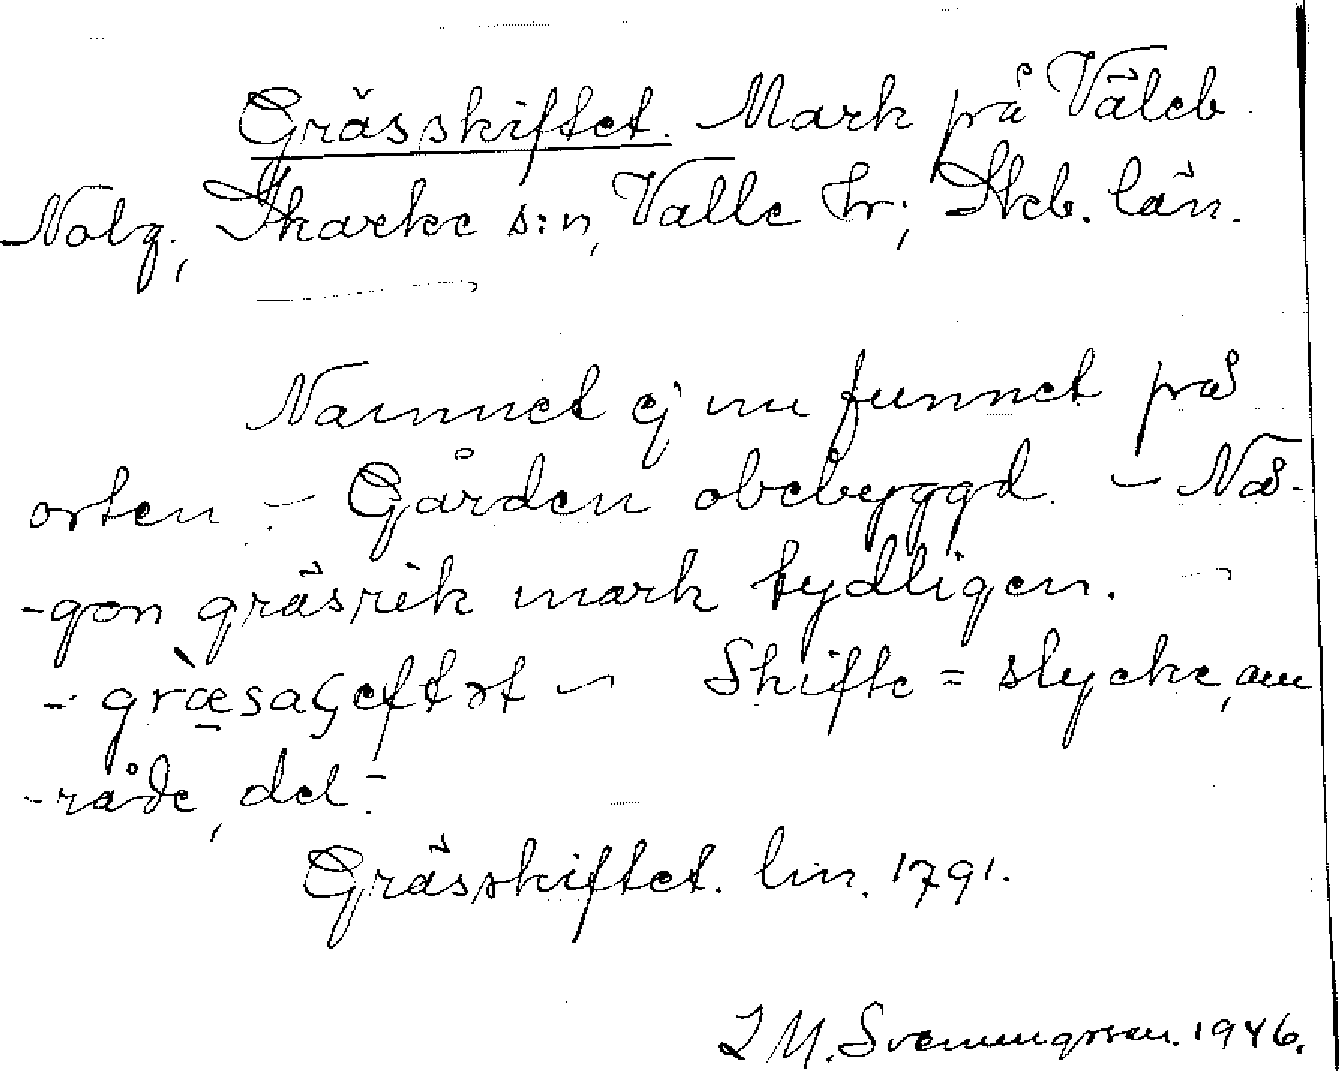 Grässkiftet. Mark på Väleb.
Nolg., Skarke s:n, Valle hr; Skb. län.
Namnet ej nu funnet på
orten. – Gården obebyggd. – Nå-
-gon gräsrik mark tydligen. –
– græsaςeftət – Skifte = stycke, om
-råde, del. –
Grässkiftet. lm. 1791.
I M. Svenungsson. 1946.